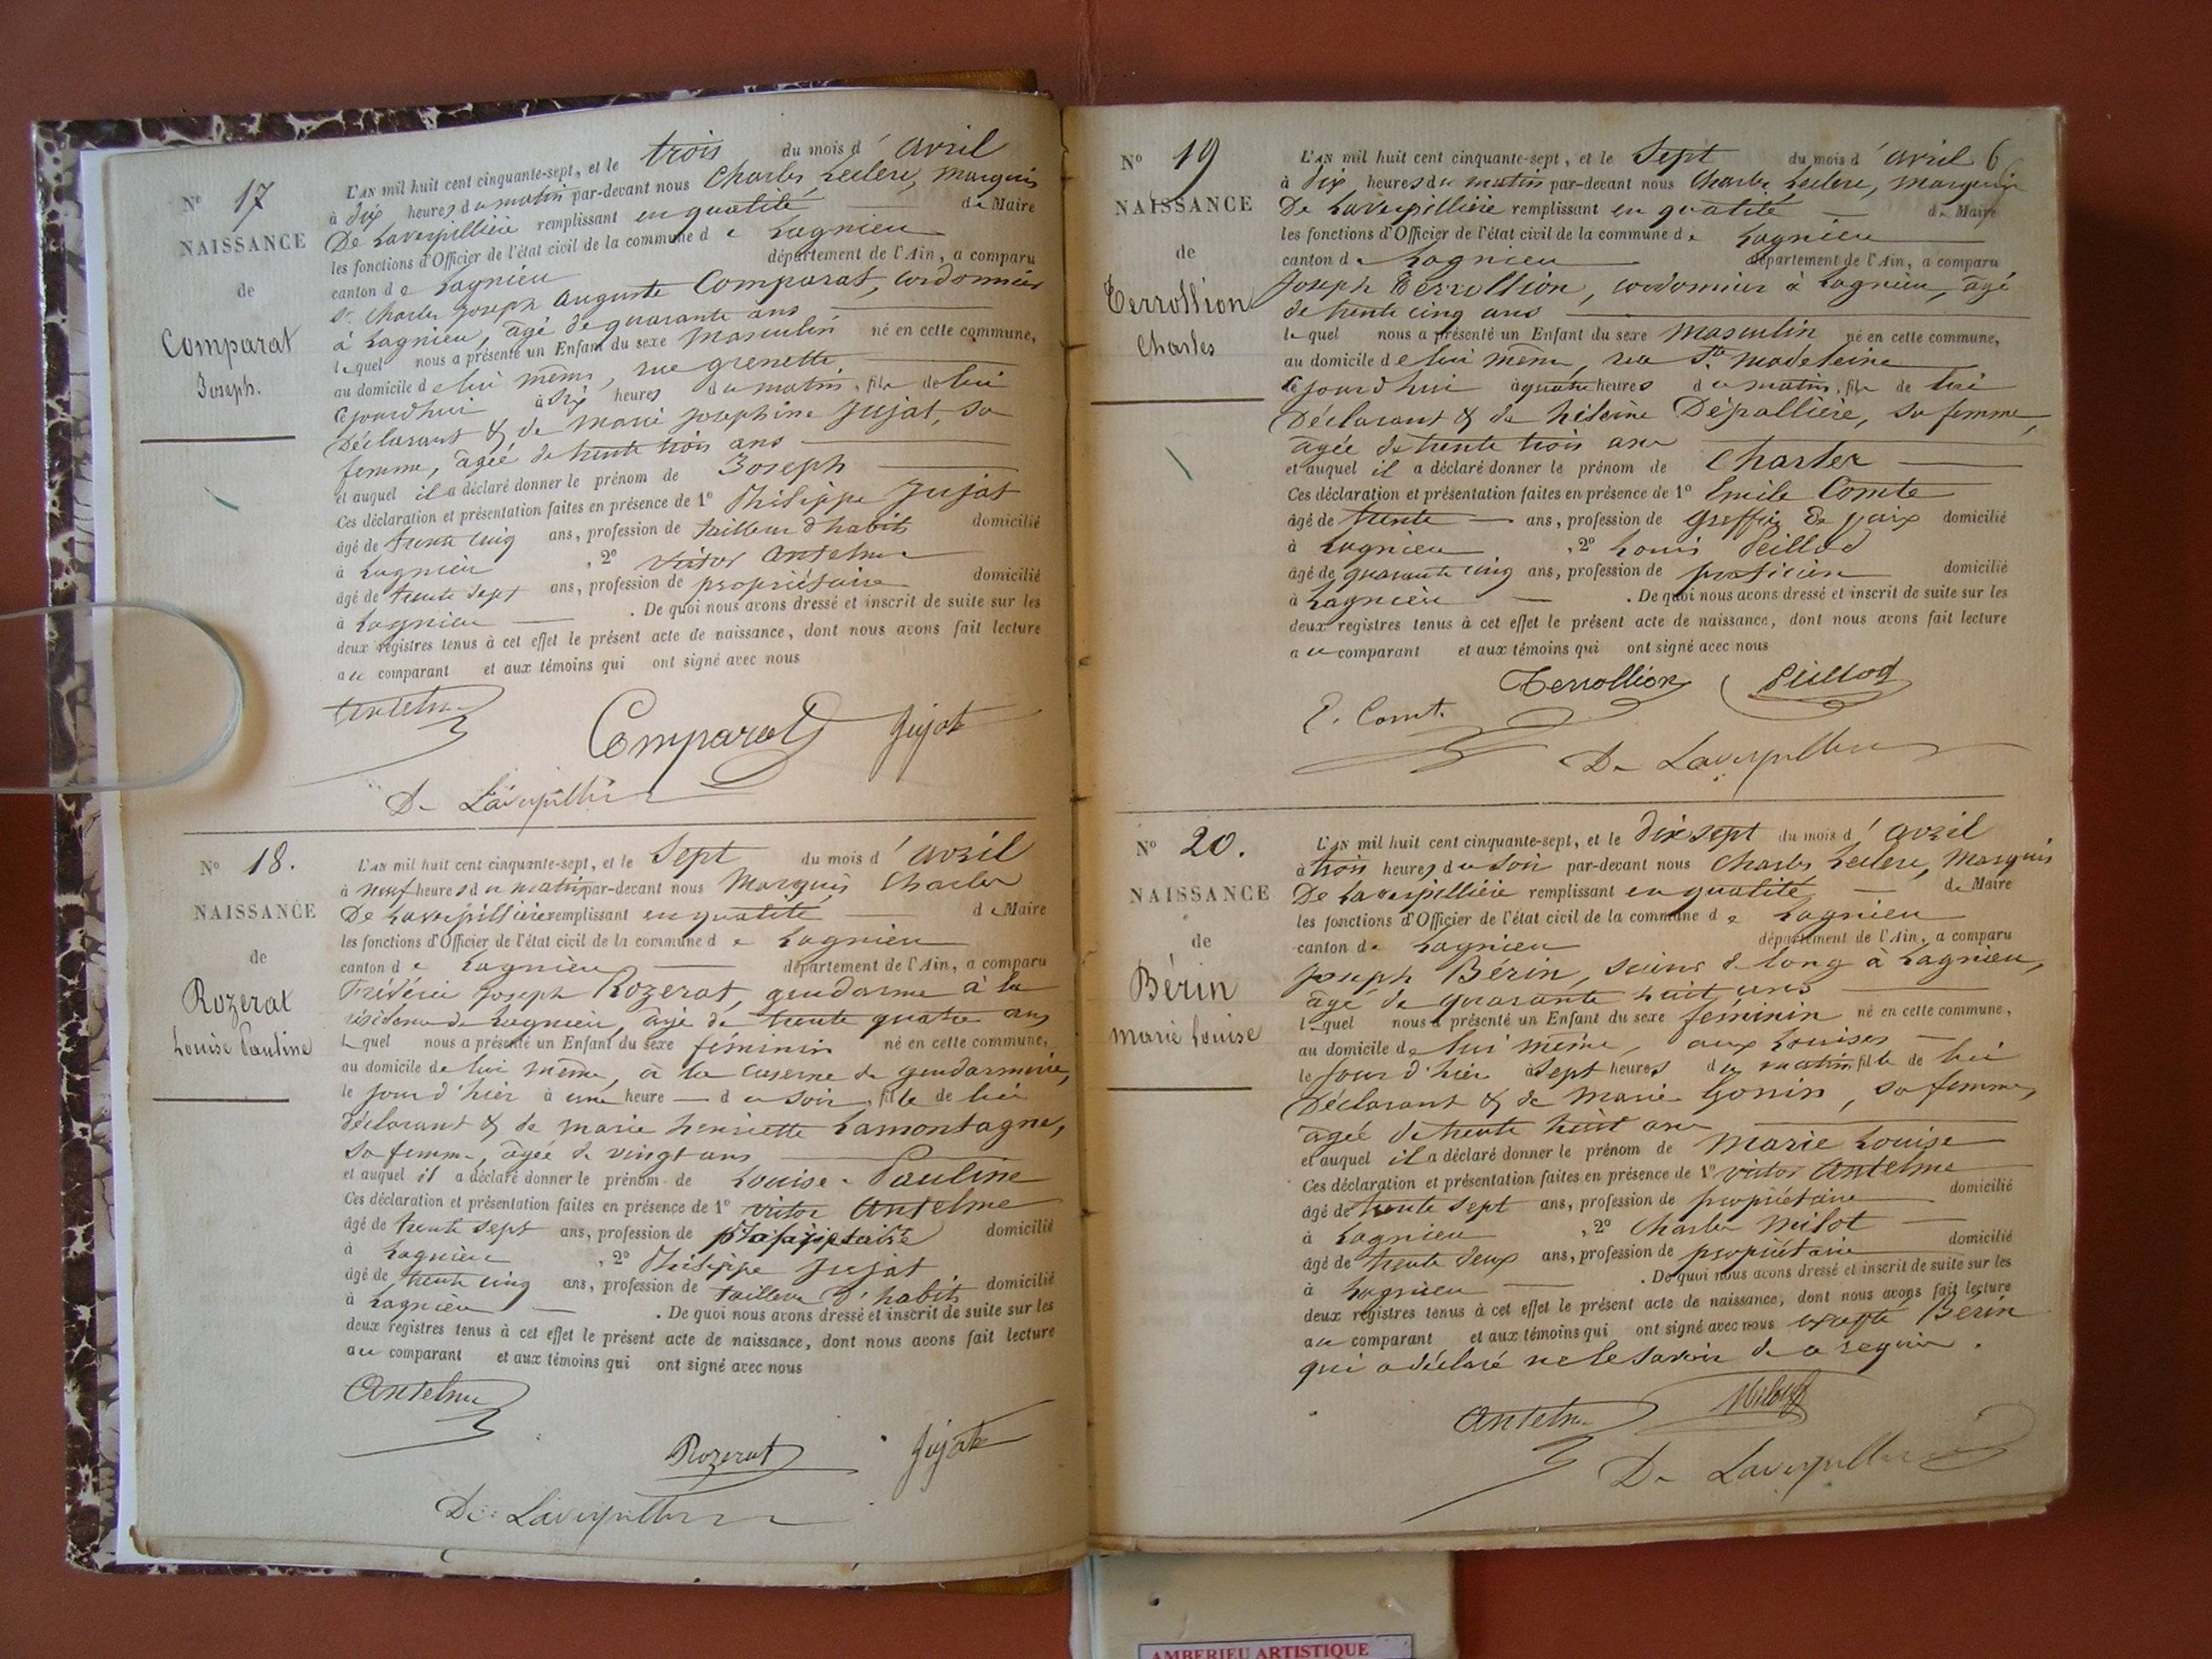 N° 17
NAISSANCE
de
Comparat
Joseph.
L'AN mil huit cent cinquante-sept, et le trois du mois d'avril
à dix heures du matin par-devant nous Charles Leclerc, Marquis
De Laverpillière remplissant en qualité de Maire
les fonctions d'Officier de l'état civil de la commune de Lagnieu
canton de Lagnieu département de l'Ain, a comparu
Sr. Charles Joseph Auguste Comparat, cordonnier
à Lagnieu, âgé de quarante ans
lequel nous a présenté un Enfant du sexe Masculin né en cette commune,
au domicile de lui même, rue grenette,
cejourdhui à six heures du matin, fils de lui
Déclarant & de Marie Josephine Jujat, sa
femme, âgée de trente trois ans
et auquel il a déclaré donner le prénom de Joseph
Ces déclaration et présentation faites en présence de 1° Philippe Jujat
âgé de trente cinq ans, profession de tailleur d'habits domicilié
à Lagnieu, 2° Victor Antelme
âgé de trente sept ans, profession de propriétaire domicilié
à Lagnieu. De quoi nous avons dressé et inscrit de suite sur les
deux registres tenus à cet effet le présent acte de naissance, dont nous avons fait lecture
au comparant et aux témoins qui ont signé avec nous
Antelme
Comparat Jujat
De Laverpillière
N° 18.
NAISSANCE
de
Rozerat
Louise Pauline
L'AN mil huit cent cinquante-sept, et le Sept du mois d'avril
à neuf heures du matin par-devant nous Marquis Charles
De Laverpillière remplissant en qualité de Maire
les fonctions d'Officier de l'état civil de la commune de Lagnieu
canton de Lagnieu département de l'Ain, a comparu
Frédéric Joseph Rozerat, gendarme à la
résidence de Lagnieu, âgé de trente quatre ans
lequel nous a présenté un Enfant du sexe féminin né en cette commune,
au domicile de lui même, à la caserne de gendarmerie,
le jour d'hier à une heure du soir, fille de lui
déclarant & de marie henriette Lamontagne,
sa femme, âgée de vingt ans
et auquel il a déclaré donner le prénom de Louise-Pauline
Ces déclaration et présentation faites en présence de 1° Victor Antelme
âgé de trente sept ans, profession de propriétaire domicilié
à Lagnieu, 2° Philippe Jujat
âgé de trente cinq ans, profession de tailleur d'habits domicilié
à Lagnieu. De quoi nous avons dressé et inscrit de suite sur les
deux registres tenus à cet effet le présent acte de naissance, dont nous avons fait lecture
au comparant et aux témoins qui ont signé avec nous
Antelme
Rozerat Jujat
De Laverpillière
N° 19
NAISSANCE
de
Terrollion
Charles
L'AN mil huit cent cinquante-sept, et le Sept du mois d'avril 6
à dix heures du matin par-devant nous Charles Leclerc, Marquis
De Laverpillière remplissant en qualité de Maire
les fonctions d'Officier de l'état civil de la commune de Lagnieu
canton de Lagnieu département de l'Ain, a comparu
Joseph Terrollion, cordonnier à Lagnieu, âgé
de trente cinq ans
lequel nous a présenté un Enfant du sexe Masculin né en cette commune,
au domicile de lui même, rue Ste. Madeleine
cejourdhui à quatre heures du matin, fils de lui
Déclarant & de hélène Dépallière, sa femme,
âgée de trente trois ans
et auquel il a déclaré donner le prénom de Charles
Ces déclaration et présentation faites en présence de 1° Emile Comte
âgé de trente ans, profession de Greffier de paix domicilié
à Lagnieu, 2° Louis Peillod
âgé de quarante cinq ans, profession de praticien domicilié
à Lagnieu. De quoi nous avons dressé et inscrit de suite sur les
deux registres tenus à cet effet le présent acte de naissance, dont nous avons fait lecture
au comparant et aux témoins qui ont signé avec nous
Terrollion Peillod
E. Comt.
De Laverpillière
N° 20.
NAISSANCE
de
Bérin
Marie Louise
L'AN mil huit cent cinquante-sept, et le dix sept du mois d'avril
à trois heures du soir par-devant nous Charles Leclerc, Marquis
De Laverpillière remplissant en qualité de Maire
les fonctions d'Officier de l'état civil de la commune de Lagnieu
canton de Lagnieu département de l'Ain, a comparu
Joseph Bérin, scieur de long à Lagnieu,
âgé de quarante huit ans
lequel nous a présenté un Enfant du sexe féminin né en cette commune,
au domicile de lui même, aux
le jour d'hier à sept heures du matin fille de lui
Déclarant & de Marie Gonin, sa femme,
âgée de trente huit ans
et auquel il a déclaré donner le prénom de Marie Louise
Ces déclaration et présentation faites en présence de 1° Victor Antelme
âgé de trente sept ans, profession de propriétaire domicilié
à Lagnieu, 2° Charles Milot
âgé de trente deux ans, profession de propriétaire domicilié
à Lagnieu. De quoi nous avons dressé et inscrit de suite sur les
deux registres tenus à cet effet le présent acte de naissance, dont nous avons fait lecture
au comparant et aux témoins qui ont signé avec nous excepté Bérin
qui a déclaré ne le savoir de ce requis.
Antelme Milot
De Laverpillière
AMBERIEU ARTISTIQUE